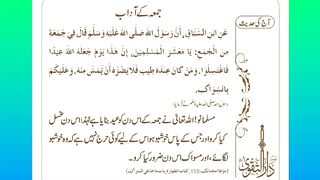 جمعہ کے آداب
آج کی حدیث
عَنِ ابْنِ السَّبَّاقِ، أَنَّ رَسُولَ اللهِ صَلَّى اللهُ عَلَيْهِ وَسَلَّمَ قَالَ فِي جُمُعَةٍ
مِنَ الْجُمَعِ: يَا مَعْشَرَ الْمُسْلِمِينَ، إِنَّ هَذَا يَوْمٌ جَعَلَهُ اللهُ عِيدًا
فَاغْتَسِلُوا، وَمَنْ كَانَ عِنْدَهُ طِيبٌ فَلَا يَضُرُّهُ أَنْ يَمَسَّ مِنْهُ، وَعَلَيْكُمْ
بِالسِّوَاكِ.
مسلمانو! اللہ تعالی نے جمعہ کے اس دن کو عید بنایا ہے لہٰذا اس دن غسل
کیا کرو اور جس کے پاس خوشبو ہو اس کے لیے کوئی حرج نہیں ہے کہ وہ خوشبو
لگائے، اور مسواک اس دن ضرور کیا کرو۔
دار التقویٰ